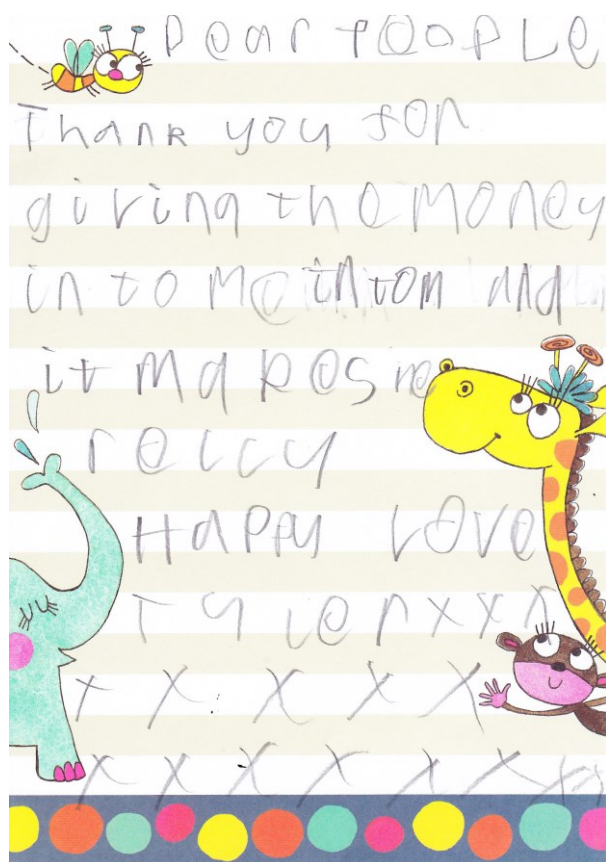 Dear PeopLe
Thank you for
giving the money
in to me in tom and
it makes me
relly
Happy Love
Tyler x x x
x x x x x
x x x x x x x x